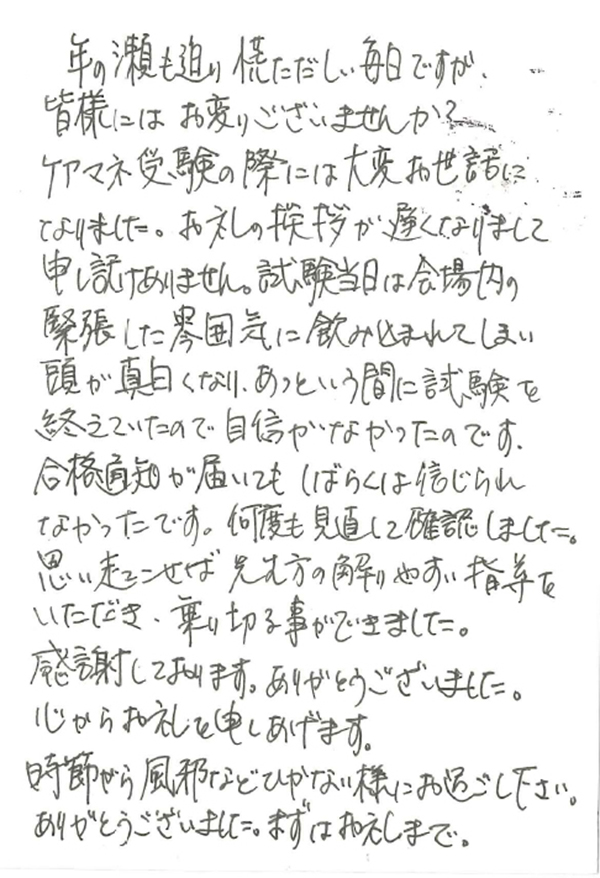 年の瀬も迫り慌ただしい毎日ですが、
皆様にはお変りございませんか?
ケアマネ受験の際には大変お世話に
なりました。お礼の挨拶が遅くなりまして
申し訳けありません。試験当日は会場内の
緊張した雰囲気に飲み込まれてしまい
頭が真白くなり、あっという間に試験を
終えていたので自信がなかったのです。
合格通知が届いてもしばらくは信じられ
なかったです。何度も見直して確認しました。
思い起こせば先生方の解りやすい指導を
いただき、乗り切る事ができました。
感謝しております。ありがとうございました。
心からお礼を申しあげます。
時節がら風邪などひかない様にお過ごし下さい。
ありがとうございました。まずはお礼まで。